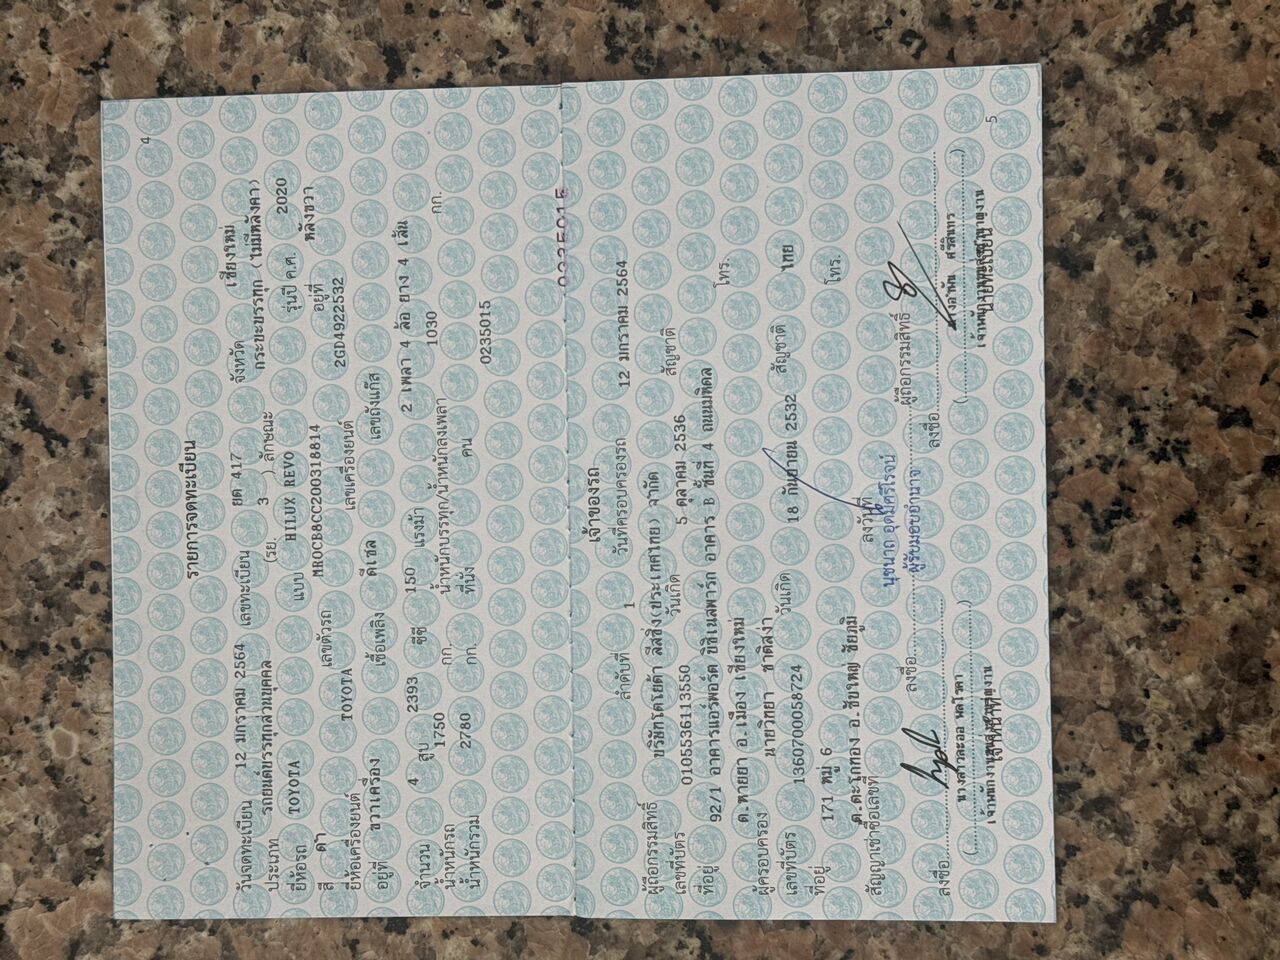 4
รายการจดทะเบียน
วันจดทะเบียน 12 มกราคม 2564 เลขทะเบียน ยต 417 จังหวัด เชียงใหม่
ประเภท รถยนต์บรรทุกส่วนบุคคล (รย. 3 ) ลักษณะ กระบะบรรทุก (ไม่มีหลังคา)
ยี่ห้อรถ TOYOTA แบบ HILUX REVO รุ่นปี ค.ศ. 2020
สี ดำ เลขตัวรถ MR0CB8CC200318814 อยู่ที่ หลังขวา
ยี่ห้อเครื่องยนต์ TOYOTA เลขเครื่องยนต์ 2GD4922532
อยู่ที่ ขวาเครื่อง เชื้อเพลิง ดีเซล เลขถังแก๊ส
จำนวน 4 สูบ 2393 ซีซี 150 แรงม้า 2 เพลา 4 ล้อ ยาง 4 เส้น
น้ำหนักรถ 1750 กก. น้ำหนักบรรทุก/น้ำหนักลงเพลา 1030 กก.
น้ำหนักรวม 2780 กก. ที่นั่ง คน
0235015
0235015
เจ้าของรถ
ลำดับที่ 1 วันที่ครอบครองรถ 12 มกราคม 2564
ผู้ถือกรรมสิทธิ์ บริษัทโตโยต้า ลีสซิ่ง(ประเทศไทย) จำกัด
เลขที่บัตร 0105536113550 วันเกิด 5 ตุลาคม 2536 สัญชาติ
ที่อยู่ 92/1 อาคารแอร์พอร์ต บิซิเนสพาร์ก อาคาร B ชั้นที่ 4 ถนนมหิดล
ต.หายยา อ.เมือง เชียงใหม่ โทร.
ผู้ครอบครอง นายวิทยา ชาติสง่า
เลขที่บัตร 1360700058724 วันเกิด 18 กันยายน 2532 สัญชาติ ไทย
ที่อยู่ 171 หมู่ 6
ต.ตะโกทอง อ.ซับใหญ่ ชัยภูมิ โทร.
สัญญาเช่าซื้อเลขที่ ลงวันที่
นุชนาถ อุดมศรีโรจน์
ผู้รับมอบอำนาจ
ลงชื่อ ผู้ถือกรรมสิทธิ์
ลงชื่อ ลงชื่อ
เจ้าพนักงานขนส่งชำนาญงาน เจ้าพนักงานขนส่งชำนาญงาน
เจ้าหน้าที่ นายทะเบียน
5